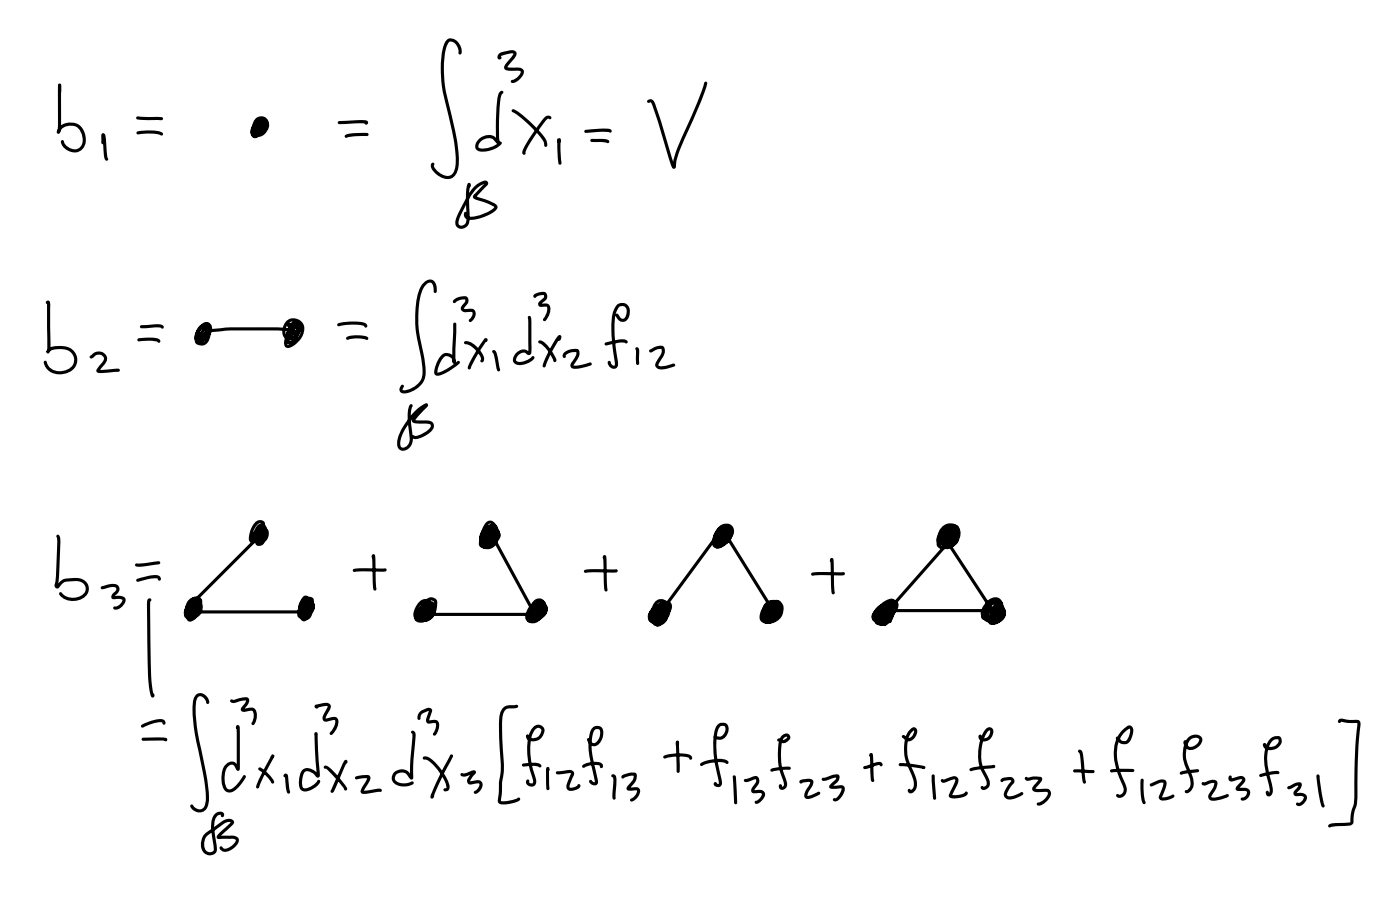 b₁ = • = ∫_𝓑 d³x₁ = V
b₂ = •—• = ∫_𝓑 d³x₁ d³x₂ f₁₂
b₃ = + + +
= ∫_𝓑 d³x₁ d³x₂ d³x₃ [f₁₂f₁₃ + f₁₃f₂₃ + f₁₂f₂₃ + f₁₂f₂₃f₃₁]